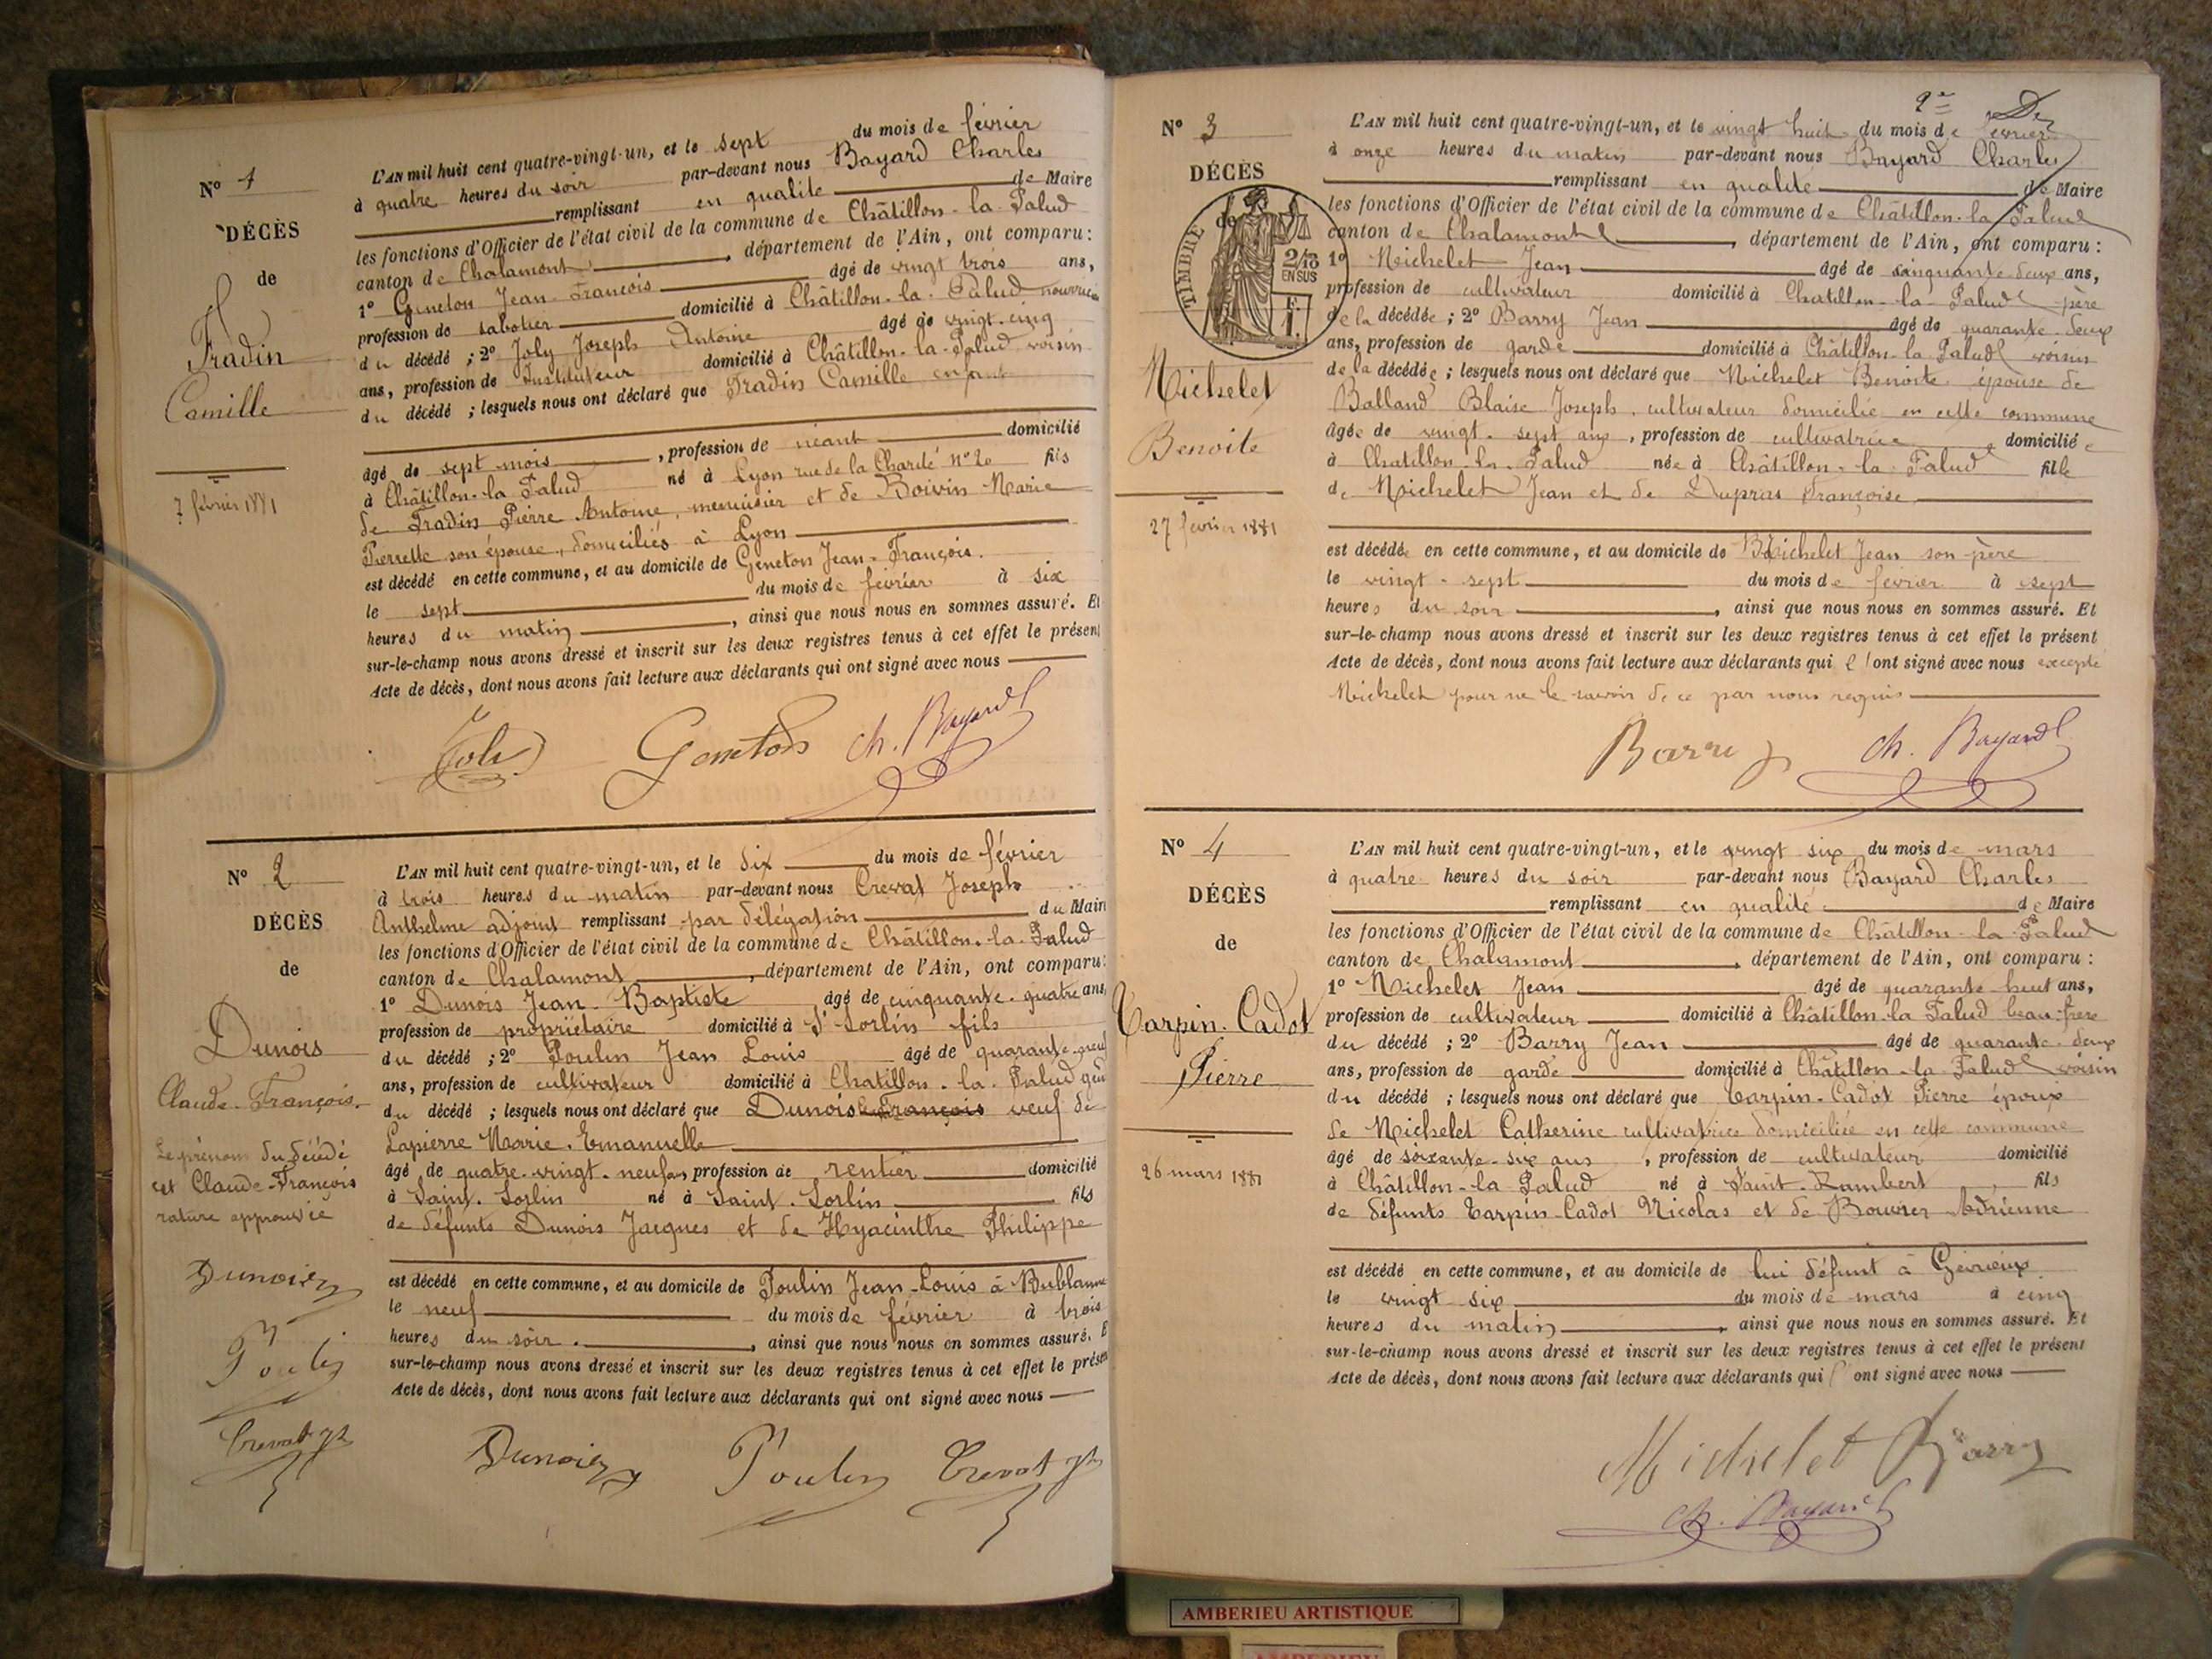 N° 1
DÉCÈS
de
Fradin
Camille
7 février 1881
L'AN mil huit cent quatre-vingt-un, et le sept du mois de février
à quatre heures du soir par-devant nous Bayard Charles
remplissant en qualité de Maire
les fonctions d'Officier de l'état civil de la commune de Châtillon-la-Palud
canton de Chalamont, département de l'Ain, ont comparu:
1° Geneton Jean-François âgé de vingt trois ans,
profession de sabotier domicilié à Châtillon-la-Palud nourricier
du décédé ; 2° Joly Joseph Antoine âgé de vingt-cinq
ans, profession de Instituteur domicilié à Châtillon-la-Palud voisin
du décédé ; lesquels nous ont déclaré que Fradin Camille enfant
âgé de sept mois, profession de néant domicilié
à Châtillon-la-Palud né à Lyon rue de la Charité N° 20 fils
de Fradin Pierre Antoine, menuisier et de Boivin Marie
Pierrette son épouse, domiciliés à Lyon
est décédé en cette commune, et au domicile de Geneton Jean-François.
le sept du mois de février à six
heures du matin, ainsi que nous nous en sommes assuré. Et
sur-le-champ nous avons dressé et inscrit sur les deux registres tenus à cet effet le présent
Acte de décès, dont nous avons fait lecture aux déclarants qui ont signé avec nous
Joly Geneton Ch. Bayard
N° 2
DÉCÈS
de
Dunois
Claude-François.
Le prénom du décédé
est Claude-François
rature approuvée
Dunoiez
Poulin
Crevat Jh
L'AN mil huit cent quatre-vingt-un, et le dix du mois de février
à trois heures du matin par-devant nous Crevat Joseph
Anthelme adjoint remplissant par délégation du Maire
les fonctions d'Officier de l'état civil de la commune de Châtillon-la-Palud
canton de Chalamont, département de l'Ain, ont comparu:
1° Dunois Jean-Baptiste âgé de cinquante-quatre ans,
profession de propriétaire domicilié à St Sorlin fils
du décédé ; 2° Poulin Jean Louis âgé de quarante-neuf
ans, profession de cultivateur domicilié à Chatillon-la-Palud
du décédé ; lesquels nous ont déclaré que Dunois François veuf de
Lapierre Marie-Emanuelle
âgé de quatre-vingt-neuf ans, profession de rentier domicilié
à Saint-Sorlin né à Saint-Sorlin fils
de défunts Dunois Jacques et de Hyacinthe Philippe
est décédé en cette commune, et au domicile de Poulin Jean-Louis à Bublanne
le neuf du mois de février à trois
heures du soir, ainsi que nous nous en sommes assuré. E
sur-le-champ nous avons dressé et inscrit sur les deux registres tenus à cet effet le prése
Acte de décès, dont nous avons fait lecture aux déclarants qui ont signé avec nous
Dunoiez Poulin Crevat Jh
N° 3
DÉCÈS
de
TIMBRE
2/10
EN SUS
F.
1.
Michelet
Benoite
27 février 1881
L'AN mil huit cent quatre-vingt-un, et le vingt huit du mois de février
à onze heures du matin par-devant nous Bayard Charles
remplissant en qualité de Maire
les fonctions d'Officier de l'état civil de la commune de Châtillon-la-Palud
canton de Chalamont, département de l'Ain, ont comparu :
1° Michelet Jean âgé de cinquante-deux ans,
profession de cultivateur domicilié à Chatillon-la-Palud père
de la décédée ; 2° Barry Jean âgé de quarante-deux
ans, profession de garde domicilié à Châtillon-la-Palud voisin
de la décédée ; lesquels nous ont déclaré que Michelet Benoite épouse de
Balland Blaise Joseph, cultivateur domicilié en cette commune
âgée de vingt-sept ans, profession de cultivatrice, domiciliée
à Chatillon-la-Palud née à Châtillon-la-Palud fille
de Michelet Jean et de Dupras Françoise
est décédée en cette commune, et au domicile de Michelet Jean son père
le vingt-sept du mois de février à sept
heures du soir, ainsi que nous nous en sommes assuré. Et
sur-le-champ nous avons dressé et inscrit sur les deux registres tenus à cet effet le présent
Acte de décès, dont nous avons fait lecture aux déclarants qui l'ont signé avec nous excepté
Michelet pour ne le savoir de ce par nous requis
Barry Ch. Bayard
N° 4
DÉCÈS
de
Carpin-Cadot
Pierre
26 mars 1881
L'AN mil huit cent quatre-vingt-un, et le vingt six du mois de mars
à quatre heures du soir par-devant nous Bayard Charles
remplissant en qualité de Maire
les fonctions d'Officier de l'état civil de la commune de Châtillon-la-Palud
canton de Chalamont, département de l'Ain, ont comparu :
1° Michelet Jean âgé de quarante huit ans,
profession de cultivateur domicilié à Châtillon-la-Palud beau-frère
du décédé ; 2° Barry Jean âgé de quarante-deux
ans, profession de garde domicilié à Châtillon-la-Palud voisin
du décédé ; lesquels nous ont déclaré que Carpin-Cadot Pierre époux
de Michelet Catherine cultivatrice domiciliée en cette commune
âgé de soixante-six ans, profession de cultivateur domicilié
à Châtillon-la-Palud né à Saint-Rambert, fils
de défunts Carpin-Cadot Nicolas et de Bouvier Adrienne
est décédé en cette commune, et au domicile de lui défunt à Gévrieux
le vingt six du mois de mars à cinq
heures du matin, ainsi que nous nous en sommes assuré. Et
sur-le-champ nous avons dressé et inscrit sur les deux registres tenus à cet effet le présent
Acte de décès, dont nous avons fait lecture aux déclarants qui l'ont signé avec nous
Michelet Barry
Ch. Bayard
AMBERIEU ARTISTIQUE
AMBERIEU